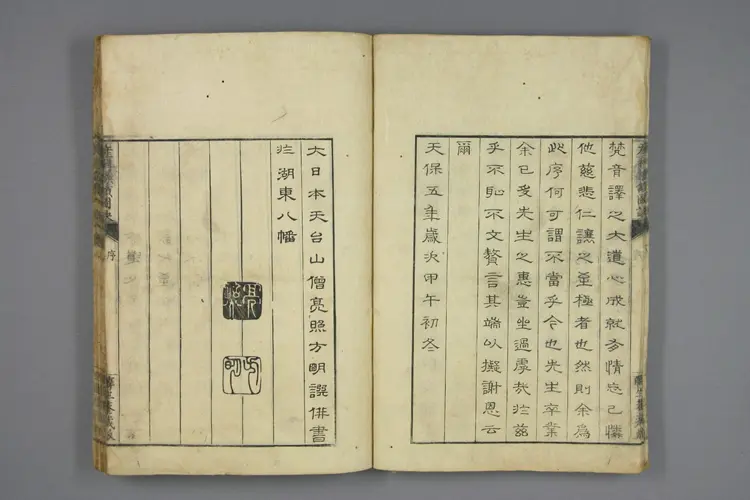 梵音譯之大道心成就多情忘己憐
他慈悲仁讓之至極者也然則余為
此序何可謂不當乎今也先生卒業
余已受先生之惠豈坐過虖哉於茲
乎不恥不文贅言其端以擬謝恩云
爾
天保五年歲次甲午初冬
大日本天台山僧亮照方明譔併書
於湖東八幡
序